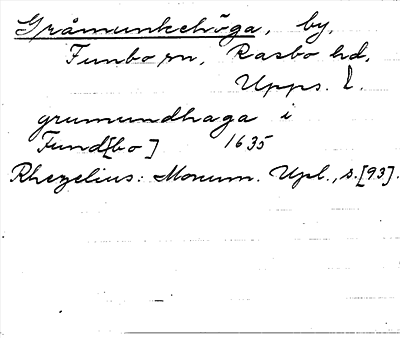 Gråmunkehöga, by,
Funbo sn, Rasbo hd,
Upps. l.
grumundhaga i
Fund[bo] 1635
Rhezelius: Monum. Upl., s. [93].